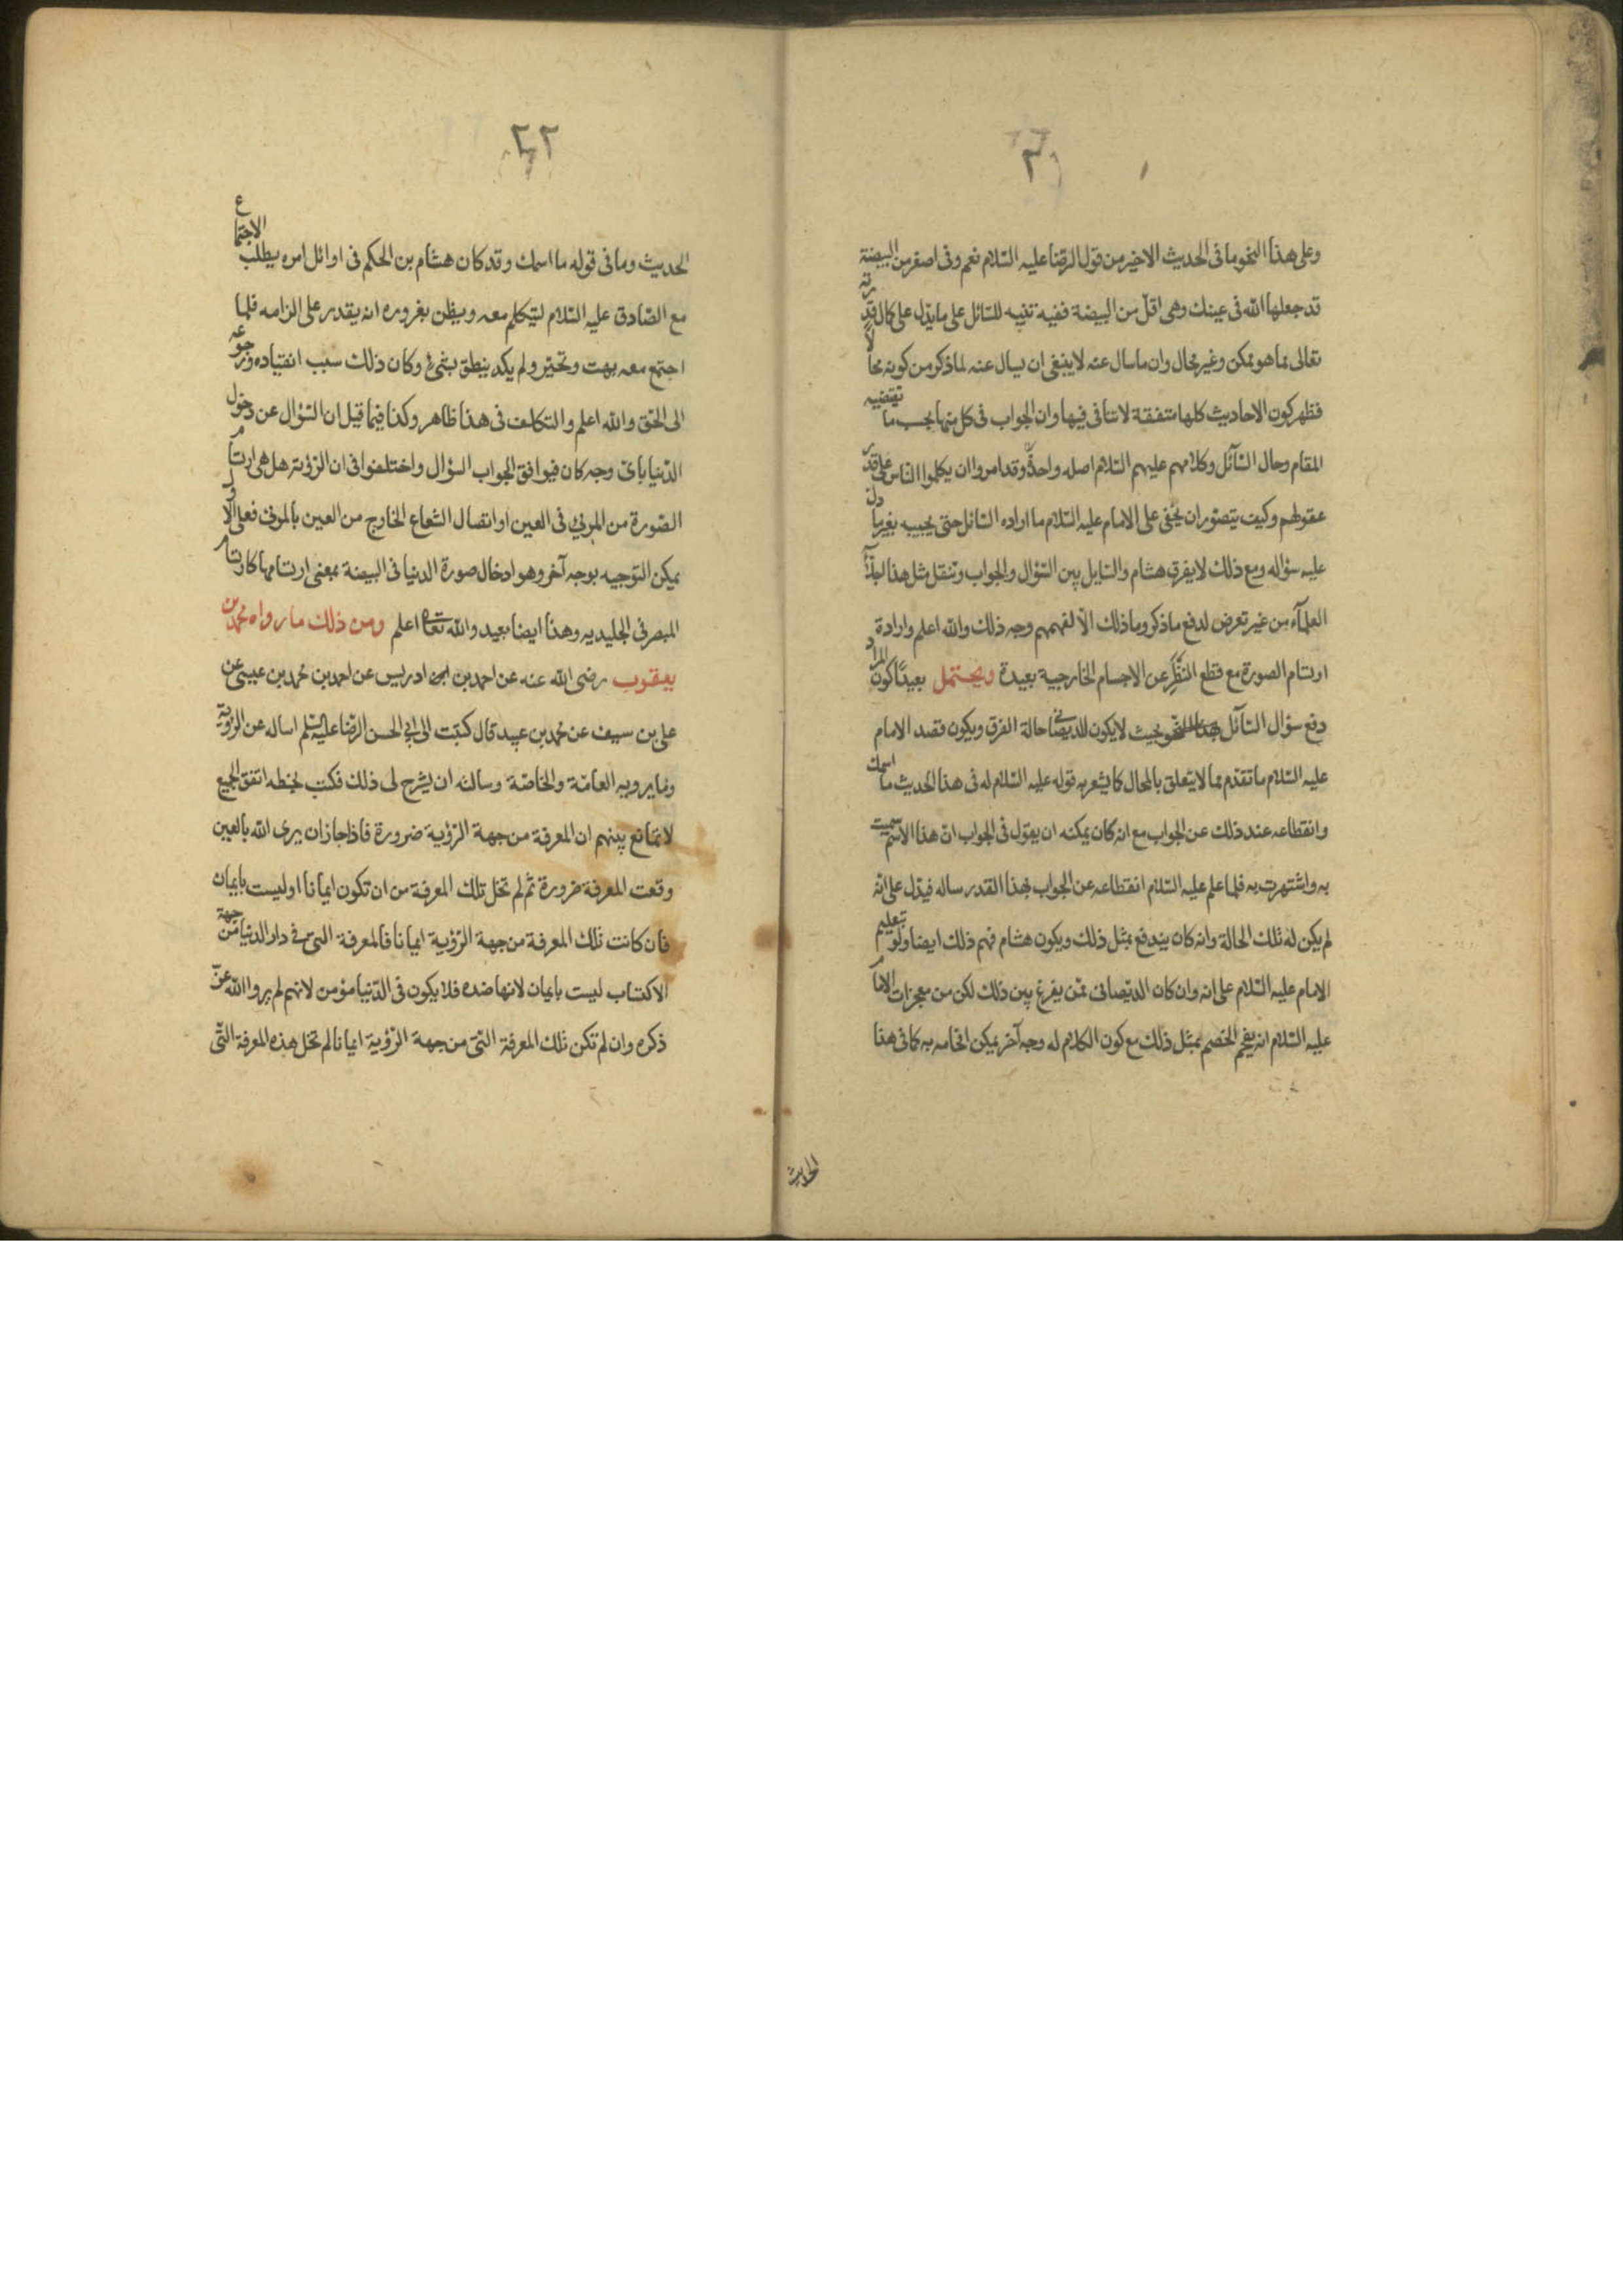 وعلى هذا النحو ما فى الحديث الاخير من قول الرضا عليه السّلام نعم وفى اصغر من البيضة
قد جعلها الله فى عينك وهى اقلّ من البيضة ففيه تنبيه للسّائل على ما يدلّ على كمال قدرته
تعالى مما هو ممكن وغير محال وان ما سال عنه لا ينبغى ان يسال عنه لما ذكر من كونه محالاً
فظهر كون الاحاديث كلها متفقة لا تنافى فيها وان الجواب فى كل منها بحسب ما تقتضيه
المقام وحال السّآئل وكلامهم عليهم السّلام اصله واحد وقد امروا ان يكلموا النّاس على قدر
عقولهم وكيف يتصوّر ان يخفى على الامام عليه السّلام ما اراده السّائل حتى يجيبه بغير ما دلّ
عليه سؤاله ومع ذلك لا يفرق هشام والسّايل بين السّؤال والجواب وتنقل مثل هذا اجلّآء
العلمآء من غير تعرض لدفع ما ذكر وما ذلك الّا لفهمهم وجه ذلك والله اعلم وارادة
ارتسام الصورة مع قطع النّظر عن الاجسام الخارجية بعيدة ويحتمل بعيدًا كون المراد
دفع سؤال السّآئل بهذا النحو بحيث لا يكون للديصانى حالة الفرق ويكون قصد الامام
عليه السّلام ما تقدّم مما لا يتعلق بالمحال كما يشعر به قوله عليه السّلام له فى هذا الحديث ما اسمك
وانقطاعه عند ذلك عن الجواب مع انه كان يمكنه ان يقول فى الجواب انّ هذا الاسم سميت
به واشتهرت به فلما علم عليه السّلام انقطاعه عن الجواب بهذا القدر ساله فيدّل على انّه
لم يكن له تلك الحالة وانه كان يندفع بمثل ذلك ويكون هشام فهم ذلك ايضا ولو بتعليم
الامام عليه السّلام على انه وان كان الديّصانى ممّن يفرغ بين ذلك لكن من معجزات الامام
عليه السّلام انه يفحم الخصم بمثل ذلك مع كون الكلام له وجه آخر يمكن افحامه به كما فى هذا
الحديث
٢٢
الحديث وما فى قوله ما اسمك وقد كان هشام بن الحكم فى اوائل امره يطلب الاجتماع
مع الصّادق عليه السّلام ليتكلم معه ويظن بغروره انه يقدر على الزامه فلما
اجتمع معه بهت وتحيّر ولم يكد ينطق بشىء وكان ذلك سبب انقياده ورجوعه
الى الحق والله اعلم والتكلف فى هذا ظاهر وكذا فيما قيل ان السّؤال عن دخول
الدّنيا باىّ وجه كان فيوافق الجواب السؤال واختلفوا فى ان الرؤية هل هى ارتسام
الصّورة من المرئى فى العين او اتصال الشعاع الخارج من العين بالمرئى فعلى الاول
يمكن التوجيه بوجه آخر وهو ادخال صورة الدنيا فى البيضة بمعنى ارتسامها كارتسام
المبصر فى الجليديه وهذا ايضا بعيد والله تعالى اعلم ومن ذلك ما رواه محمد بن
يعقوب رضى الله عنه عن احمد بن ادريس عن احمد بن محمد بن عيسى عن
على بن سيف عن محمد بن عبيد قال كتبت الى ابى الحسن الرضا عليه السّلم اساله عن الرؤية
وما يرويه العامّة والخاصّة وسالته ان يشرح لى ذلك فكتب بخطه اتفق الجميع
لا تمانع بينهم ان المعرفة من جهة الرّؤية ضرورة فاذا جاز ان يرى الله بالعين
وقعت المعرفة ضرورة ثم لم تخل تلك المعرفة من ان تكون ايمانا او ليست بايمان
فان كانت تلك المعرفة من جهة الرّؤية ايمانا فالمعرفة التى فى دار الدنيا من جهة
الاكتساب ليست بايمان لانها ضده فلا يكون فى الدّنيا مؤمن لانهم لم يروا الله عزّ
ذكره وان لم تكن تلك المعرفة التى من جهة الرّؤية ايمانا لم تخل هذه المعرفة التّى